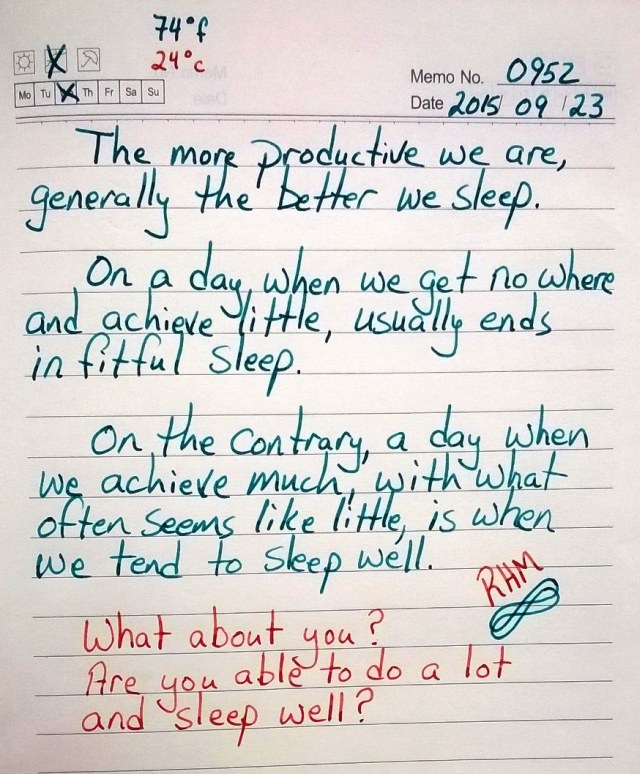 74°f
24°c
Memo No. 0952
Mo Tu Th Fr Sa Su
Date 2015/ 09 / 23
The more productive we are,
generally the better we sleep.
On a day, when we get no where
and achieve little, usually ends
in fitful sleep.
On the contrary, a day when
we achieve much, with what
often seems like little, is when
we tend to sleep well.
RHM
What about you?
Are you able to do a lot
and sleep well?